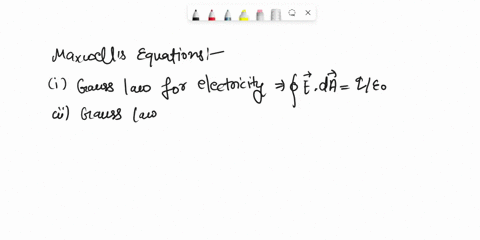 Maxwell's Equations:-
(i) Gauss law for electricity ⇒ ∮ E⃗.dA⃗ = q/ε₀
(ii) Gauss law